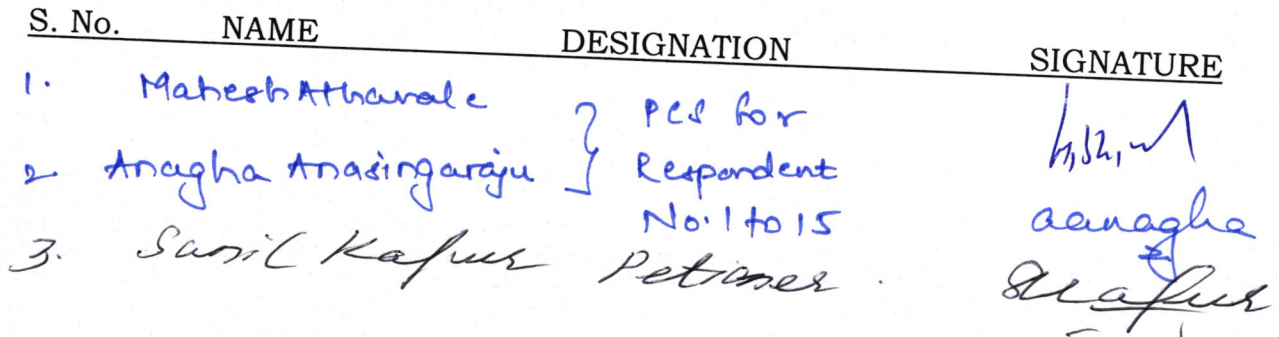 S. No. NAME DESIGNATION SIGNATURE
1. Mahesh Athavale PCS for
2 Anagha Anasingaraju } Respondent
No. 1 to 15 aanagha
3. Sunil Kapur Petioner. SKapur